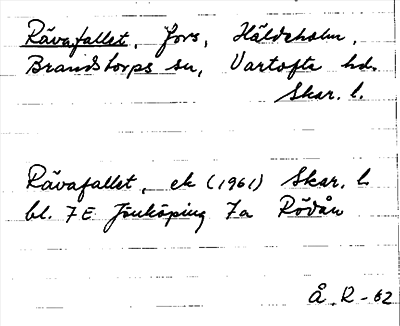 Rävafallet, fors, Häldeholm,
Brandstorps sn, Vartofta hd.
Skar. l.
Rävafallet, ek (1961) Skar. l.
bl. 7E Jönköping 7a Rödån
Å. R-62